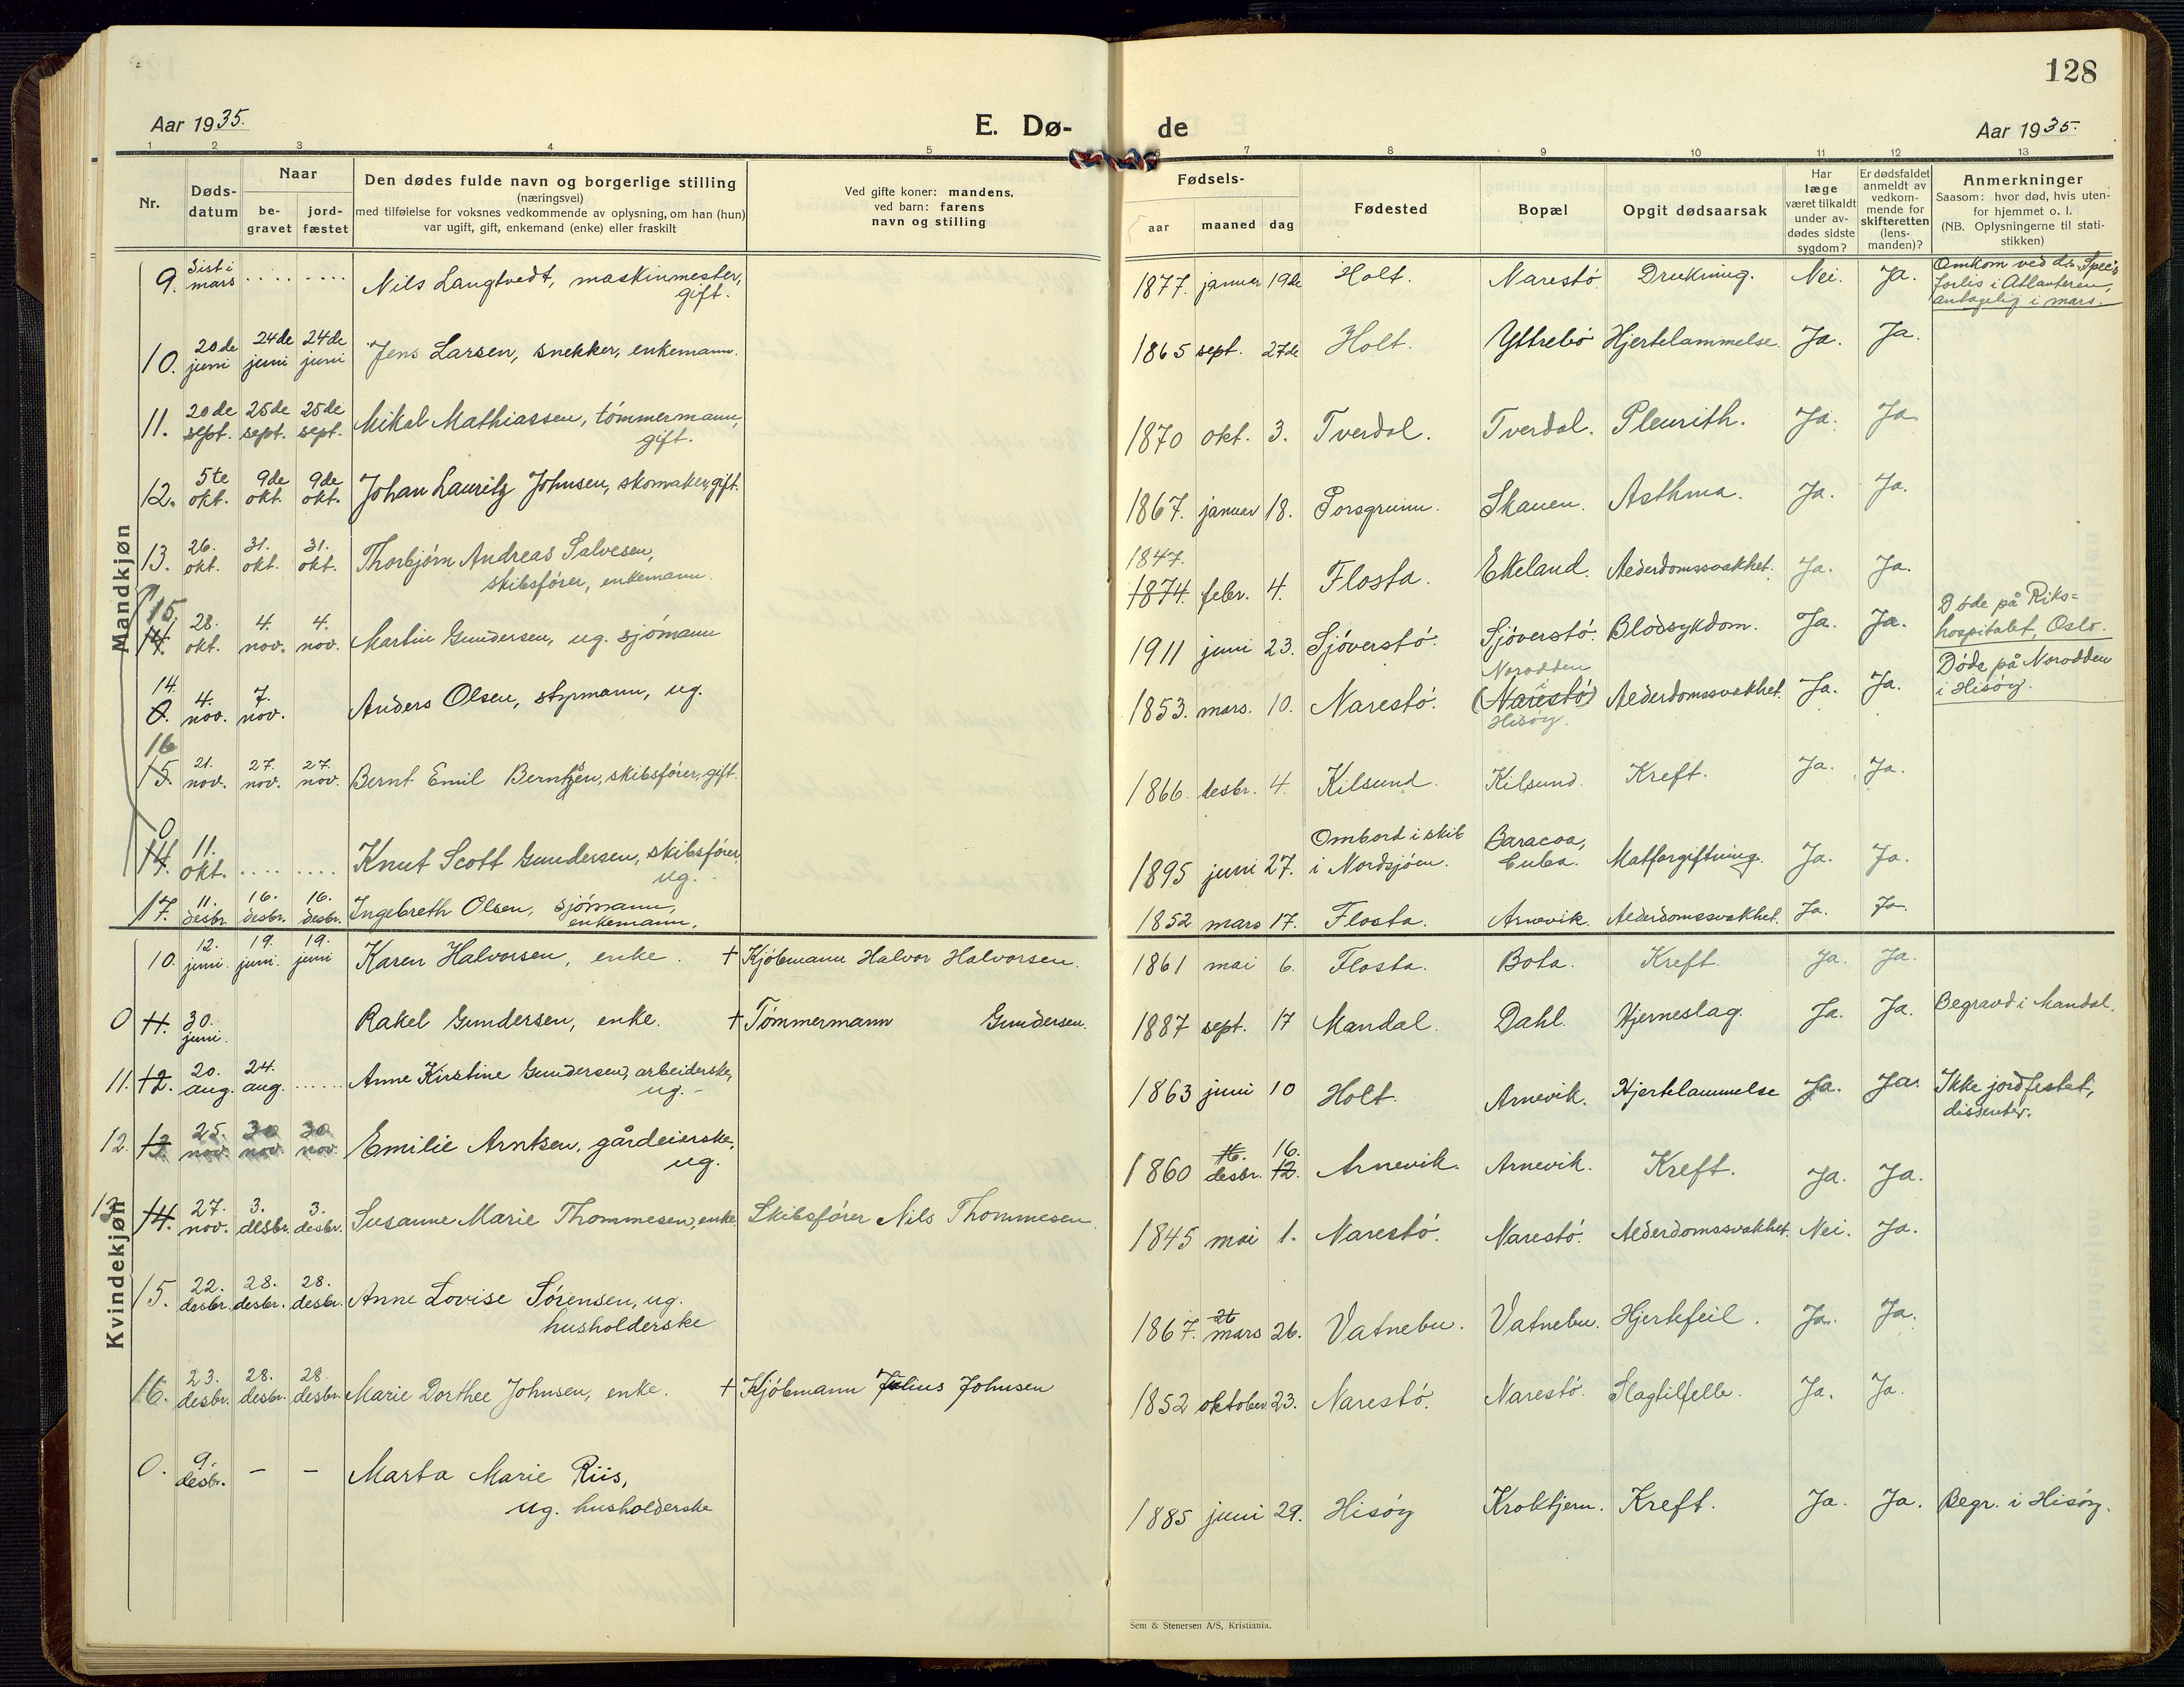 128
Aar 1935.
E. Dø-
de
Aar 1935.
1 2 3 4 5 6 7 8 9 10 11 12 13
Nr.
Døds-
datum
Naar
be-
gravet
jord-
fæstet
Den dødes fulde navn og borgerlige stilling
(næringsvei)
med tilføielse for voksnes vedkommende av oplysning, om han (hun)
var ugift, gift, enkemand (enke) eller fraskilt
Ved gifte koner: mandens,
ved barn: farens
navn og stilling
Fødsels-
aar maaned dag
Fødested
Bopæl
Opgit dødsaarsak
Har
læge
været tilkaldt
under av-
dødes sidste
sygdom?
Er dødsfaldet
anmeldt av
vedkom-
mende for
skifteretten
(lens-
manden)?
Anmerkninger
Saasom: hvor død, hvis uten-
for hjemmet o. l.
(NB. Oplysningerne til stati-
stikken)
Mandkjøn
9. Sist i mars ..... ..... Nils Langtvedt, maskinmester, gift. 1877. januar 19de Holt. Narestö. Drukning. Nei. Ja. Omkom ved ds. Spec's forlis i Atlanteren, antagelig i mars.
10. 20de juni 24de juni 24de juni Jens Larsen, snekker, enkemann. 1865 sept. 27de Holt. Yttrebö Hjertelammelse. Ja. Ja.
11. 20de sept. 25de sept. 25de sept. Mikal Mathiassen, tömmermann, gift. 1870 okt. 3. Tverdal. Tverdal. Pleurith. Ja. Ja.
12. 5te okt. 9de okt. 9de okt. Johan Lauritz Johnsen, skomaker, gift. 1867. januar 18. Porsgrunn. Skauen. Asthma. Ja. Ja.
13. 26. okt. 31. okt. 31. okt. Thorbjörn Andreas Salvesen, skibsförer, enkemann. 1847. 1874. febr. 4. Flosta. Ekeland. Alderdomssvakhet. Ja. Ja.
15. 14. 28. okt. 4. nov. 4. nov. Martin Gundersen, ug. sjömann 1911 juni 23. Sjöverstö. Sjöverstö. Blodsykdom. Ja. Ja. Döde på Riks= hospitalet, Oslo.
14. 0. 4. nov. 7. nov. Anders Olsen, styrmann, ug. 1853. mars. 10. Narestö. Norodden i (Narestö) Hisöy. Alderdomssvakhet. Ja. Ja. Döde på Norodden i Hisöy.
16 15. 21. nov. 27. nov. 27. nov. Bernt Emil Berntsen, skibsförer, gift. 1866. desbr. 4. Kilsund. Kilsund. Kreft. Ja. Ja.
0 14. 11. okt. ..... ..... Knut Scott Gundersen, skibsförer, ug. 1895 juni 27. Ombord i skib i Nordsjöen. Baracoa, Cuba. Matforgiftning. Ja. Ja.
17. 11. desbr. 16. desbr. 16. desbr. Ingebreth Olsen, sjömann, enkemann. 1852 mars 17. Flosta. Arnevik. Alderdomssvakhet. Ja. Ja.
Kvindekjøn
10. 12. juni. 19. juni. 19. juni Karen Halvorsen, enke. † Kjöbmann Halvor Halvorsen. 1861 mai 6. Flosta. Bota. Kreft. Ja. Ja.
0 11. 30. juni. Rakel Gundersen, enke. † Tömmermann Gundersen. 1887 sept. 17 Mandal. Dahl. Hjerneslag. Ja. Ja. Begravd i Mandal.
11. 12. 20. aug. 24. aug. ...... Anne Kirstine Gundersen, arbeiderske, ug. 1863 juni 10 Holt. Arnevik. Hjertelammelse Ja. Ja. Ikke jordfestet, dissenter.
12. 13. 25. nov. 30 nov. 30 nov. Emilie Arntsen, gårdeierske, ug. 1860 16. desbr. 16. 12. Arnevik. Arnevik. Kreft. Ja. Ja.
13 14. 27. nov. 3. desbr. 3. desbr. Susanne Marie Thommesen, enke. Skibsförer Nils Thommesen. 1845 mai 1. Narestö. Narestö. Alderdomssvakhet. Nei. Ja.
15. 22. desbr. 28. desbr. 28. desbr. Anne Lovise Sörensen, ug. husholderske 1867. 26 mars 26. Vatnebu. Vatnebu. Hjertefeil. Ja. Ja.
16. 23. desbr. 28. desbr. 28. desbr. Marie Dorthee Johnsen, enke. † Kjöbmann Julius Johnsen 1852 oktober 23. Narestö. Narestö. Slagtilfelle. Ja. Ja.
0. 9. desbr. – – Marta Marie Riis, ug. husholderske 1885 juni 29. Hisöy Kroktjern. Kreft. Ja. Ja. Begr. i Hisöy.
Sem & Stenersen A/S, Kristiania.